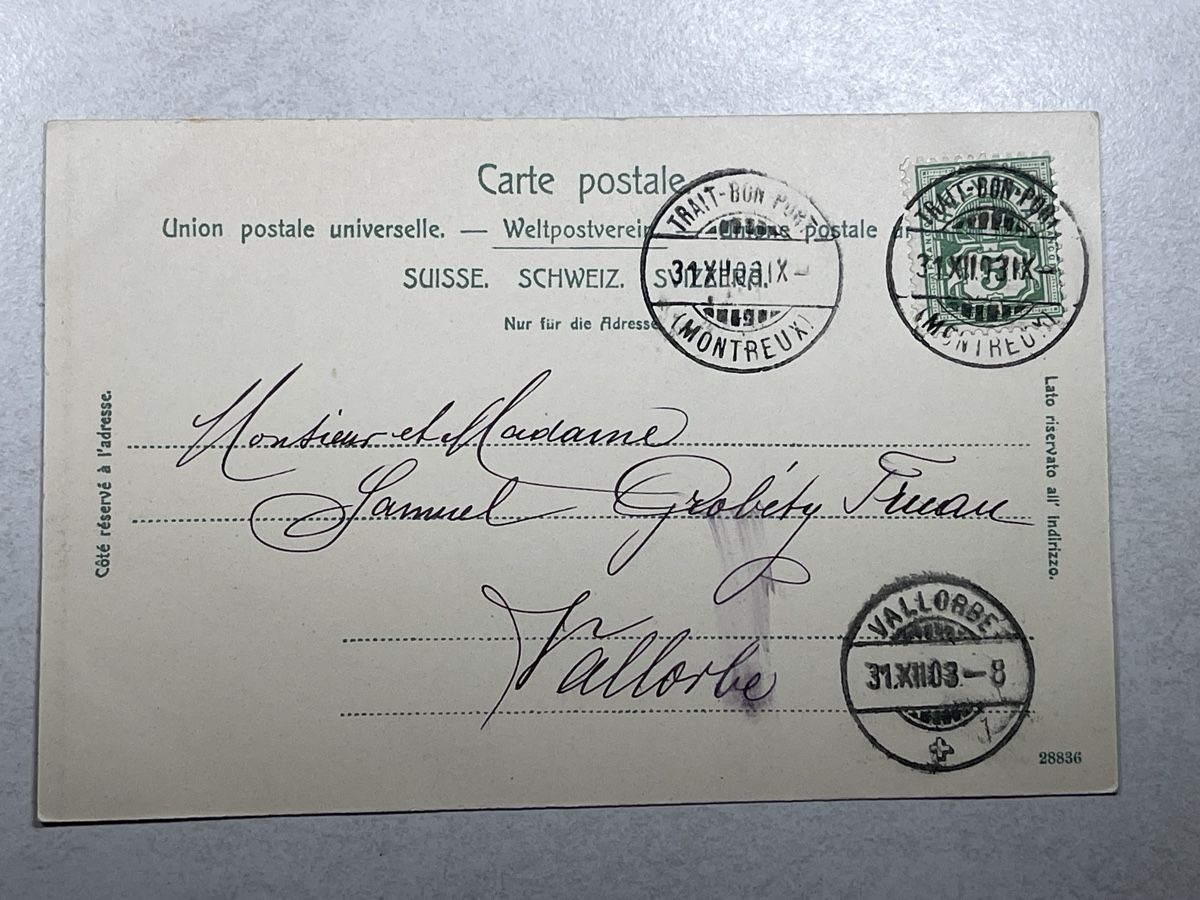 Carte postale
Union postale universelle. — Weltpostverein. — postale
SUISSE. SCHWEIZ. SVIZZERA.
Nur für die Adresse
TRAIT-BON-PORT
31.XII.03.IX-
(MONTREUX)
TRAIT-BON-PORT
31.XII.03.IX-
(MONTREUX)
5
Côté réservé à l'adresse.
Lato riservato all' indirizzo.
Monsieur et Madame
Samuel Grobéty Truan
Vallorbe
VALLORBE
31.XII.03-8
28836